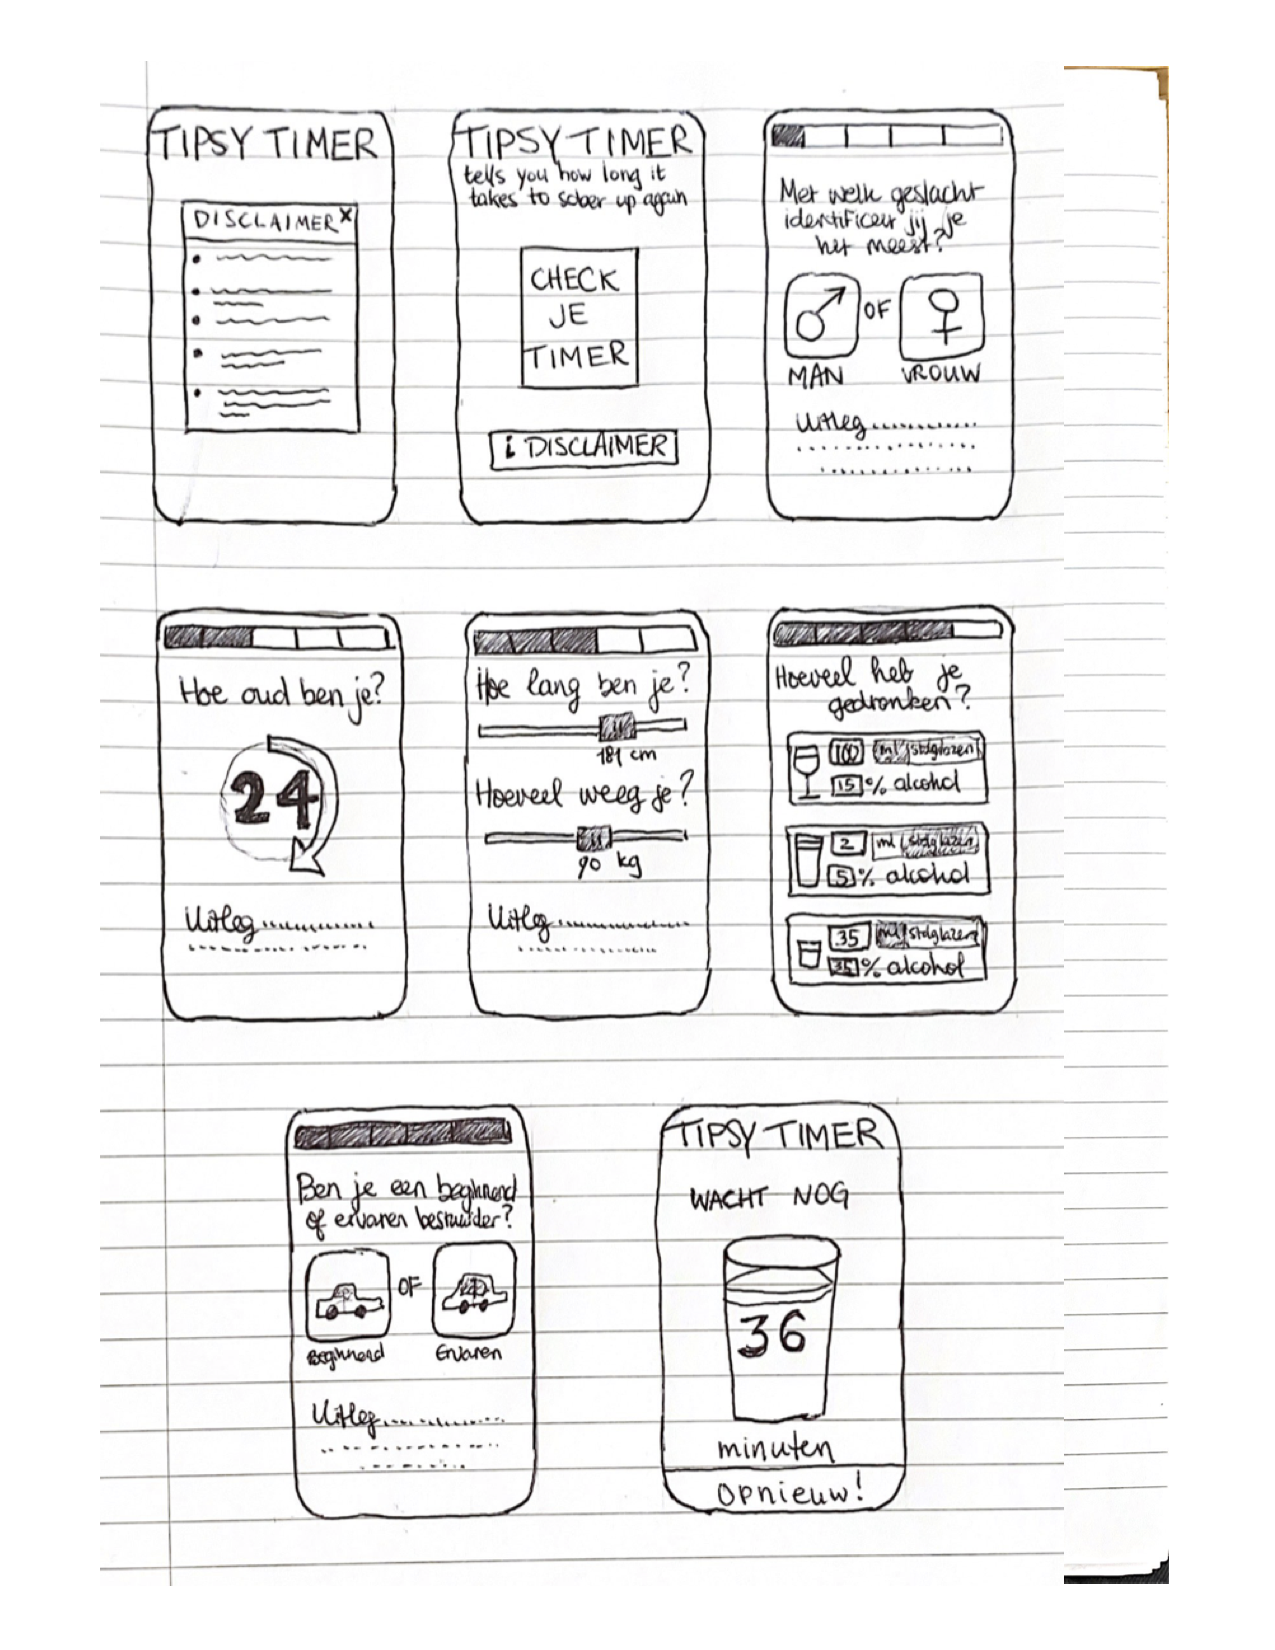 TIPSY TIMER
DISCLAIMER X
TIPSY TIMER
tells you how long it
takes to sober up again
CHECK
JE
TIMER
i DISCLAIMER
Met welk geslacht
identificeer jij je
het meest?
OF
MAN
VROUW
Uitleg..............
Hoe oud ben je?
24
Uitleg..............
Hoe lang ben je?
181 cm
Hoeveel weeg je?
90 kg
Uitleg..............
Hoeveel heb je
gedronken?
100 ml stdglazen
15 % alcohol
2 ml stdglazen
5 % alcohol
35 ml stdglazen
35 % alcohol
Ben je een beginnend
of ervaren bestuurder?
OF
Beginnend
Ervaren
Uitleg..............
TIPSY TIMER
WACHT NOG
36
minuten
Opnieuw!